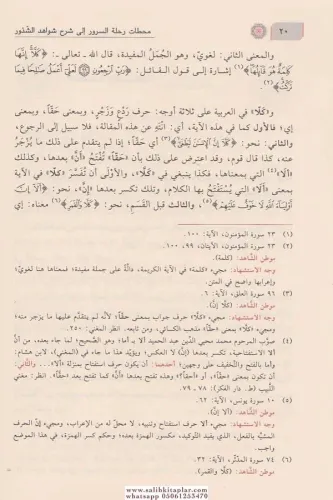 ٢٠ محطات رحلة السرور إلى شرح شواهد الشذور
والمعنى الثاني: لغويّ، وهو الجُمَلُ المفيدة، قال الله ـ تعالى ـ: ﴿كَلَّا إِنَّهَا
كَلِمَةٌ هُوَ قَائِلُهَا﴾(١) إشارة إلى قول القائل: ﴿رَبِّ ارْجِعُونِ ﴿٩٩﴾ لَعَلِّي أَعْمَلُ صَالِحًا فِيمَا
تَرَكْتُ﴾(٢).
و«كَلَّا» في العربية على ثلاثة أوجه: حرف رَدْعٍ وَزَجْرٍ، وبمعنى حَقًّا، وبمعنى
إي؛ فالأول كما في هذه الآية، أي: انْتَهِ عن هذه المقالة، فلا سبيل إلى الرجوع،
والثاني: نحو: ﴿كَلَّا إِنَّ الْإِنسَانَ لَيَطْغَى﴾(٣) أي حقاً؛ إذ لم يتقدم على ذلك ما يُزْجَرُ
عنه، كذا قال قوم، وقد اعترض على ذلك بأن «حَقّاً» تُفْتَحُ «أنَّ» بعدها، وكذلك
«أَلاَ»(٤) التي بمعناها، فكذا ينبغي في «كَلَّا»، والأوْلَى أن تُفَسَّرَ «كَلَّا» في الآية
بمعنى «أَلاَ» التي يُسْتَفْتَحُ بها الكلام، وتلك تكسر بعدها «إنَّ»، نحو: ﴿أَلَا إِنَّ
أَوْلِيَاءَ اللَّهِ لَا خَوْفٌ عَلَيْهِمْ﴾(٥)، والثالث قبل القسم، نحو: ﴿كَلَّا وَالْقَمَرِ﴾(٦) معناه: إي
(١) ٢٣ سورة المؤمنون، الآية: ١٠٠.
(٢) ٢٣ سورة المؤمنون، الآيتان: ٩٩، ١٠٠.
موطن الشاهد: «كلمة».
وجه الاستشهاد: مجيء «كلمة» في الآية الكريمة، دالّة على جملة مفيدة، فمعناها هنا لغويّ؛
وإعرابها واضح في المتن.
(٣) ٩٦ سورة العلق، الآية: ٦.
موطن الشاهد: «كلا إنّ».
وجه الاستشهاد: مجيء «كلا» حرف جواب بمعنى «حقّاً»؛ لأنه لم يتقدم عليها ما يزجر منه؛
ومجيء «كلا» بمعنى «حقّاً» مذهب الكسائي، ومن تابعه. انظر المغني: ٢٥٠.
(٤) صوّب المرحوم محمد محيي الدين عبد الحميد ألا بـ أما؛ وهو الصحيح؛ لما جاء بعده، من أنّ
ألا الاستفتاحية، تكسر بعدها «إنّ» لا العكس؛ ويؤيّد هذا ما جاء في «المغني»، لابن هشام:
وأما بالفتح والتخفيف على وجهين: أحدهما: أن يكون حرف استفتاح بمنزلة «ألا»... والثاني:
أن تكون بمعنى «حقّاً»، أو «أحقّاً»؟ وهذه تفتح بعدها «أنّ» كما تفتح بعد «حقّاً». انظر: مغني
اللبيب (ط. دار الفكر): ٧٨ ـ ٧٩.
(٥) ١٠ سورة يونس، الآية: ٦٢.
موطن الشاهد: «ألا إنّ».
وجه الاستشهاد: مجيء ألا حرف استفتاح وتنبيه، لا محلّ له من الإعراب، ومجيء إنّ الحرف
المشبّه بالفعل، الذي يفيد التوكيد، مكسور الهمزة بعده؛ وحكم كسر الهمزة، في هذا الموضع
واجب.
(٦) ٧٤ سورة المدثر، الآية: ٣٢.
موطن الشاهد: «كلا والقمر».
www.salihkitaplar.com
whatsapp 05061253470